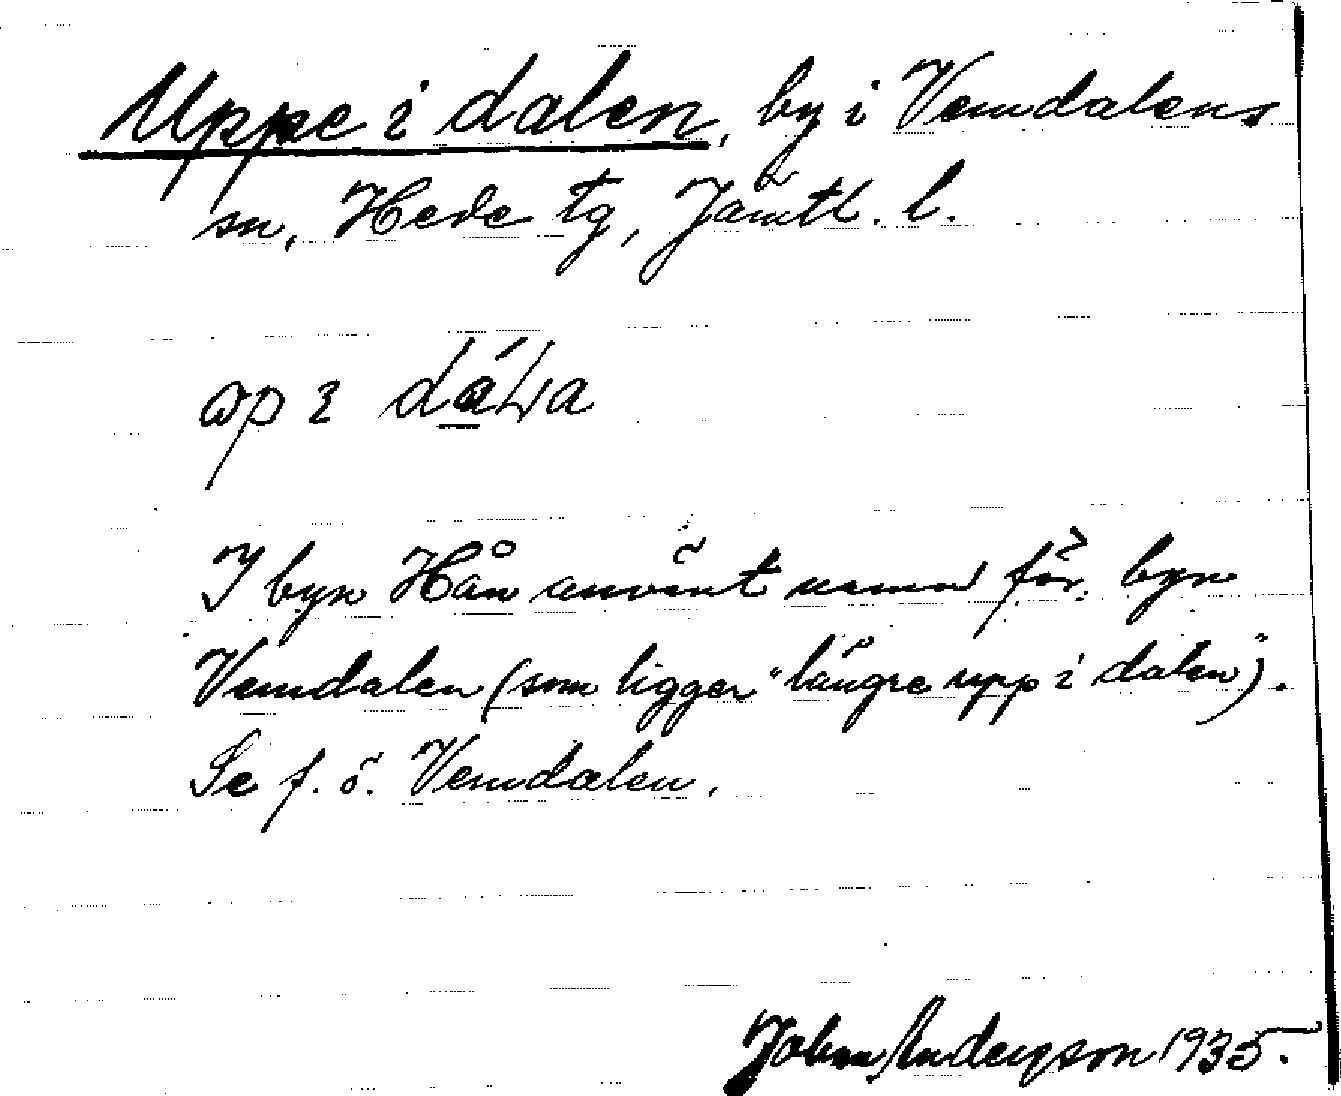 Uppe i dalen, by i Vemdalens
sn, Hede tg, Jämtl. l.
I byn Hån använt namn för byn
Vemdalen (som ligger "längre upp i dalen").
Se f. ö. Vemdalen.
Johan Anderson 1935.